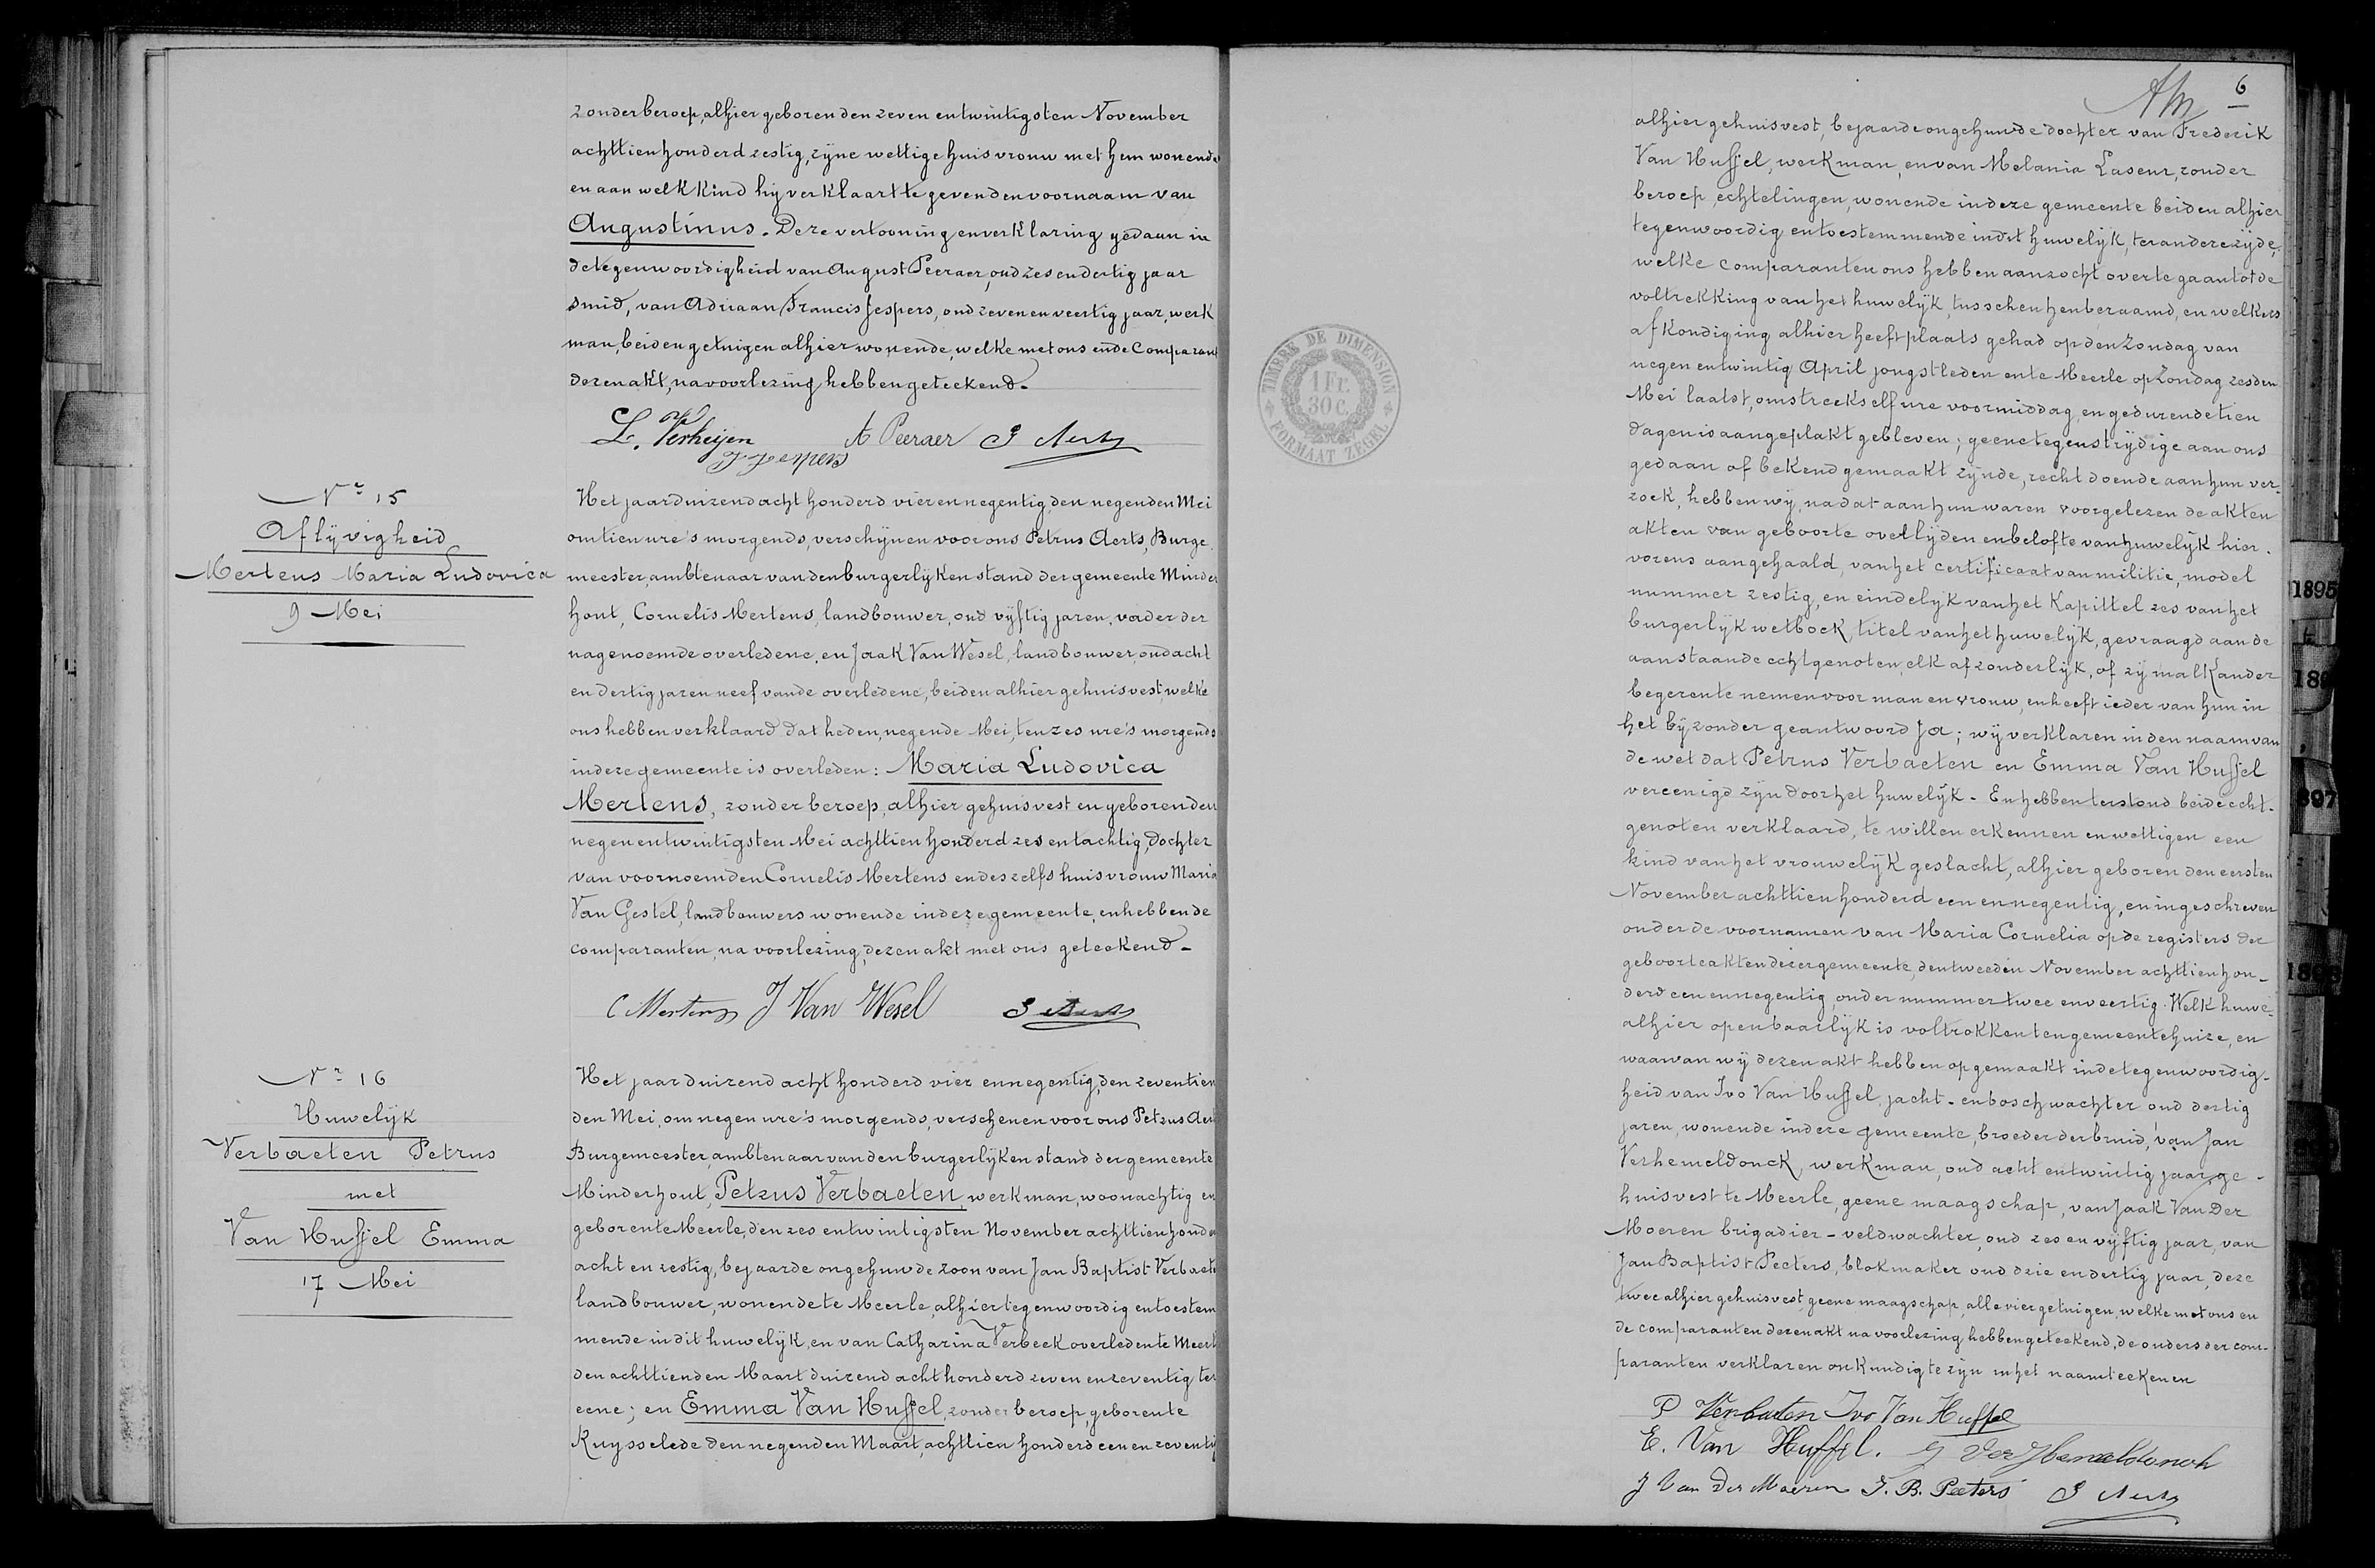 zonder beroep, alhier geboren den zeven en twintigsten November
achttien honderd zestig, zijne wettige huisvrouw met hem wonende
en aan welk kind hij verklaart te geven den voornaam van
Augustinus. Deze vertooning en verklaring gedaan in
de tegenwoordigheid van August Peeraer, oud zes en dertig jaar
smid, van Adriaan Francis Jespers, oud zeven en veertig jaar, werk
man, beiden getuigen alhier wonende, welke met ons en de Comparant
dezen akt, na voorlezing hebben geteekend.
L. Verheijen A Peeraer P Aerts
F Jespers
Nr 15
Aflijvigheid
Mertens Maria Ludovica
9 Mei
Het jaar duizend acht honderd vier en negentig, den negenden Mei
om tien ure 's morgends, verschijnen voor ons Petrus Aerts, Burge
meester, ambtenaar van den burgerlijken stand der gemeente Minder
hout, Cornelis Mertens, landbouwer, oud vijftig jaren, vader der
nagenoemde overledene, en Jaak Van Wesel, landbouwer, oud acht
en dertig jaren neef van de overledene, beiden alhier gehuisvest, welke
ons hebben verklaard dat heden, negende Mei, ten zes ure 's morgends
in deze gemeente is overleden: Maria Ludovica
Mertens, zonder beroep, alhier gehuisvest en geboren den
negen en twintigsten Mei achttien honderd zes en tachtig, dochter
van voornoemden Cornelis Mertens en des zelfs huisvrouw Maria
Van Gestel, landbouwers wonende in deze gemeente, en hebben de
comparanten, na voorlezing, dezen akt met ons geteekend.
C Mertens J Van Wesel P Aerts
Nr 16
Huwelijk
Verbaeten Petrus
met
Van Huffel Emma
17 Mei
Het jaar duizend acht honderd vier en negentig, den zeventien
den Mei, om negen ure 's morgends, verschenen voor ons Petrus Aerts
Burgemeester, ambtenaar van den burgerlijken stand der gemeente
Minderhout, Petrus Verbaeten, werkman, woonachtig en
geboren te Meerle, den zes en twintigsten November achttien honderd
acht en zestig, bejaarde ongehuwde zoon van Jan Baptist Verbaeten
landbouwer, wonende te Meerle, alhier tegenwoordig en toestem
mende in dit huwelijk, en van Catharina Verbeek overleden te Meerle
den achttienden Maart duizend acht honderd zeven en zeventig ter
eene; en Emma Van Huffel, zonder beroep, geboren te
Ruysselede den negenden Maart, achttien honderd een en zeventig
6
alhier gehuisvest, bejaarde ongehuwde dochter van Frederik
Van Huffel, werkman, en van Melania Laseur, zonder
beroep, echtelingen, wonende in deze gemeente beiden alhier
tegenwoordig en toestemmende in dit huwelijk, ter andere zijde,
welke comparanten ons hebben aanzocht over te gaan tot de
voltrekking van het huwelijk, tusschen hen beraamd, en welkers
afkondiging alhier heeft plaats gehad op den Zondag van
negen en twintig April jongstleden en te Meerle op Zondag zesden
Mei laatst, omstreeks elf ure voormiddag, en gedurende tien
dagen is aangeplakt gebleven; geene tegenstrijdige aan ons
gedaan of bekend gemaakt zijnde, recht doende aan hun ver-
zoek, hebben wij, na dat aan hun waren voorgelezen de akten
akten van geboorte overlijden en belofte van huwelijk hier.
vorens aangehaald, van het certificaat van militie, model
nummer zestig, en eindelijk van het Kapittel zes van het
burgerlijk wetboek, titel van het huwelijk, gevraagd aan de
aanstaande echtgenoten, elk afzonderlijk, of zij malkander
begeren te nemen voor man en vrouw, en heeft ieder van hun in
het bijzonder geantwoord Ja; wij verklaren in den naam van
de wet dat Petrus Verbaeten en Emma Van Huffel
vereenigd zijn door het huwelijk. En hebben terstond beide echt-
genoten verklaard, te willen erkennen en wettigen een
kind van het vrouwelijk geslacht, alhier geboren den eersten
November achttien honderd een en negentig, en ingeschreven
onder de voornamen van Maria Cornelia op de registers der
geboorte akten dezer gemeente, den tweeden November achttien hon-
derd een en negentig, onder nummer twee en veertig. Welk huwe-
alhier openbaarlijk is voltrokken ten gemeentehuize, en
waarvan wij dezen akt hebben opgemaakt in de tegenwoordig-
heid van Ivo Van Huffel, jacht- en boschwachter oud dertig
jaren, wonende in deze gemeente, broeder der bruid, van Jan
Verhemeldonck, werkman, oud acht en twintig jaar, ge-
huisvest te Meerle, geene maagschap, van Jaak Van Der
Moeren brigadier-veldwachter, oud zes en vijftig jaar, van
Jan Baptist Peeters, blokmaker oud drie en dertig jaar, deze
twee alhier gehuisvest, geene maagschap, alle vier getuigen, welke met ons en
de comparanten dezen akt na voorlezing hebben geteekend, de ouders der com-
paranten verklaren onkundig te zijn in het naamteekenen
P Verbaeten Ivo Van Huffel
E. Van Huffel. J Verhemeldonck
J Van Der Moeren J. B. Peeters P Aerts
TIMBRE DE DIMENSION
1 Fr.
30 C.
FORMAAT ZEGEL
1895
897